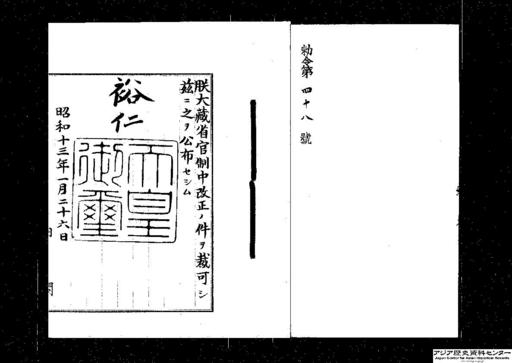 勅令第四十八號
朕大藏省官制中改正ノ件ヲ裁可シ
茲ニ之ヲ公布セシム
裕仁
天皇御璽
昭和十三年一月二十六日
アジア歴史資料センター
Japan Center for Asian Historical Records